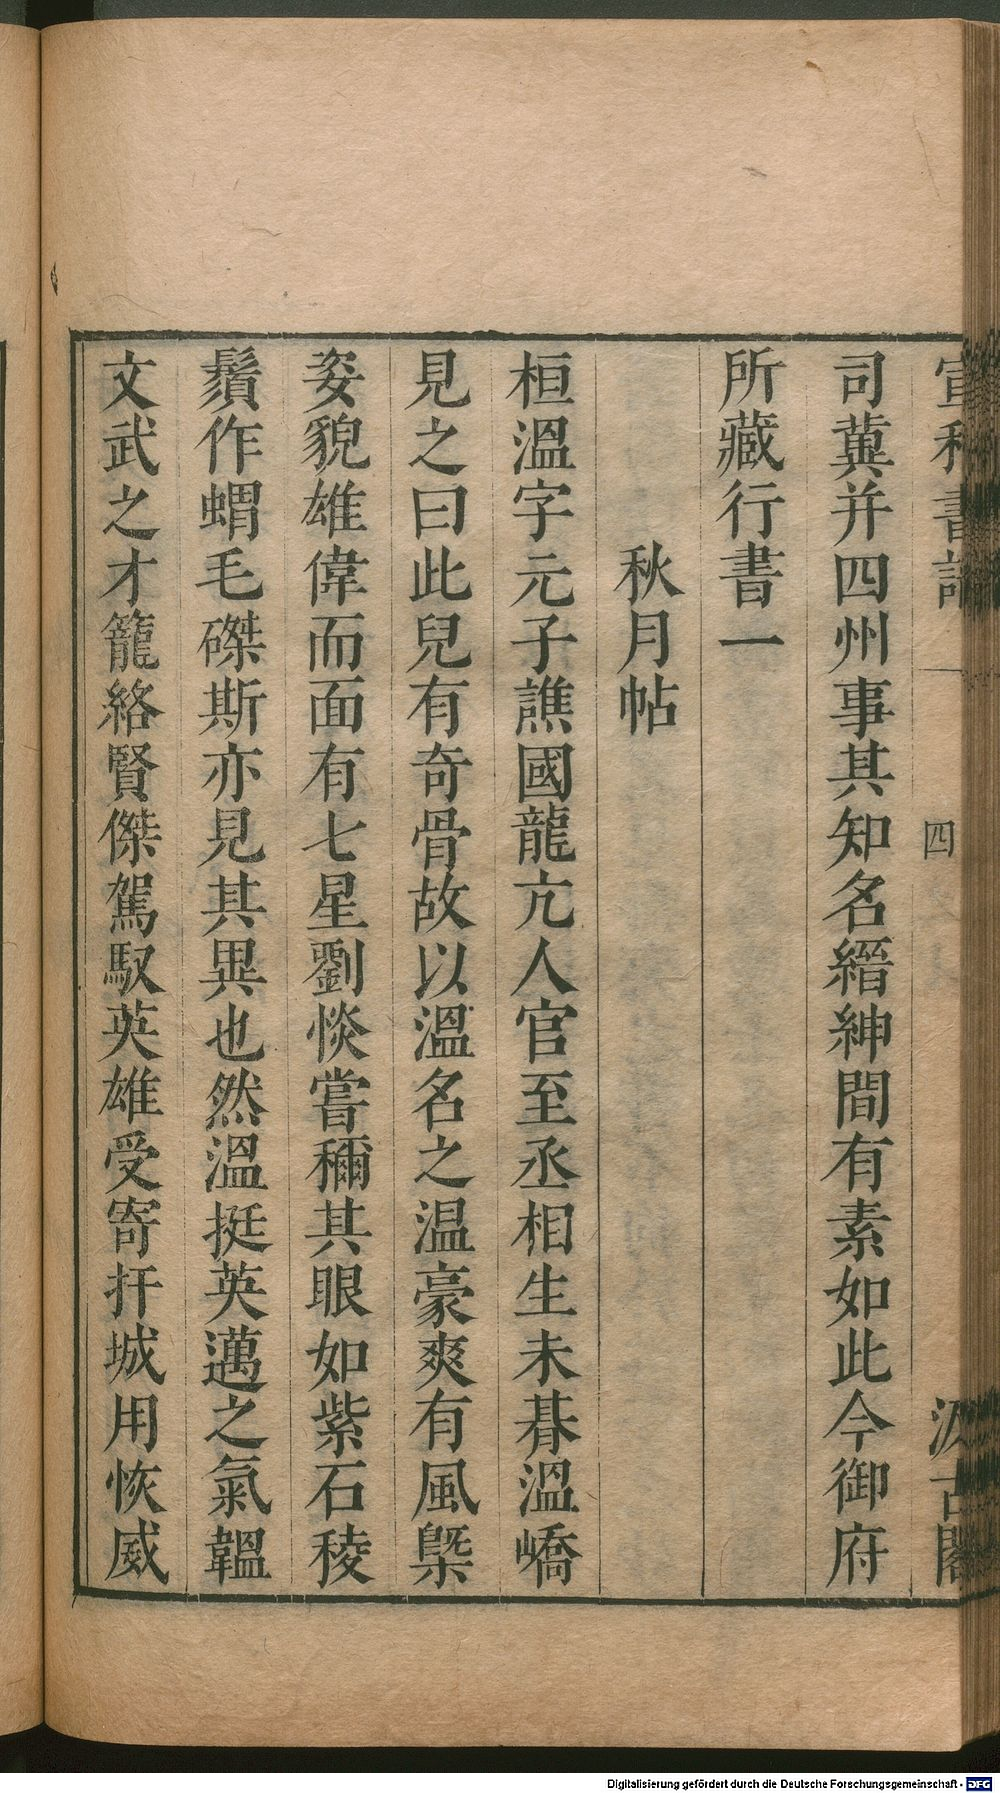 宣和書譜 四 汲古閣
司兾并四州事其知名縉紳間有素如此今御府
所藏行書一
秋月帖
桓溫字元子譙國龍亢人官至丞相生未朞溫嶠
見之曰此兒有奇骨故以溫名之溫豪爽有風槩
姿貌雄偉而面有七星劉惔嘗稱其眼如紫石稜
鬚作蝟毛磔斯亦見其異也然溫挺英邁之氣韞
文武之才籠絡賢傑駕馭英雄受寄扞城用恢威
Digitalisierung gefördert durch die Deutsche Forschungsgemeinschaft - DFG